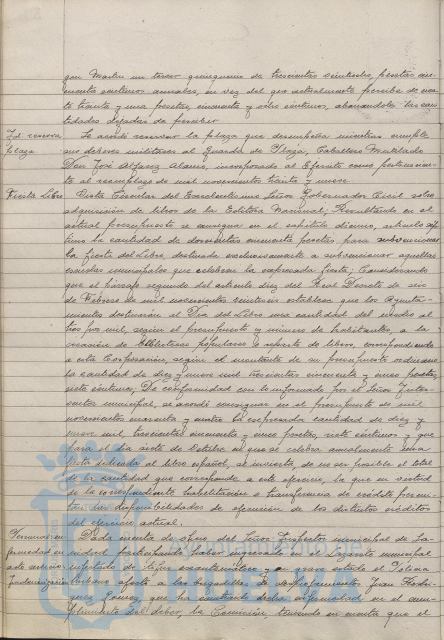 gan Martin un tercer quinquenio de trescientas veintiocho pesetas cin-
cuenta centimos anuales, en vez del que actualmente percibe de
ta treinta y una pesetas, cincuenta y ocho centimos, abonandole las can-
tidades dejadas de percibir
Id. reserva Se acordó reservar la plaza que desempeña mientras cumple
plaza sus deberes militares al Guarda de Plaza, Caballero Mutilado
Don José Alfarez Alamo, incorporado al Ejército como pertenecien-
te al reemplazo de mil novecientos treinta y nueve
Fiesta Libro Vista Circular del Excelentisimo Señor Gobernador Civil sobre
adquisición de libros de la Editora Nacional; Resultando en el
actual presupuesto se consigna en el capitulo décimo, articulo sép-
timo la cantidad de doscientas cincuenta pesetas para subvencionar
la fiesta del Libro, destinada exclusivamente a subvencionar aquellas
escuelas municipales que celebran la expresada fiesta; Considerando
que el párrafo segundo del articulo diez del Real Decreto de seis
de Febrero de mil novecientos veintiseis establece que los Ayunta-
mientos destinarán el Dia del Libro una cantidad del medio al
tres por mil, según el presupuesto y número de habitantes, a la
creación de Bibliotecas populares o reparto de libros, correspondiendo
a esta Corporación, según el montante de su presupuesto ordinario
la cantidad de diez y nueve mil trescientas cincuenta y cinco pesetas,
siete centimos; De conformidad con lo informado por el Señor Inter-
ventor municipal, se acordó consignar en el presupuesto de mil
novecientos cuarenta y cuatro la expresada cantidad de diez y
nueve mil, trescientas cincuenta y cinco pesetas, siete centimos y que
para el dia siete de Octubre en que se celebra anualmente una
fiesta dedicada al libro español, se invierta, de no ser posible el total
de la cantidad que corresponde a este ejercicio, la que en virtud
de la correspondiente habilitación o transferencia de crédito permi-
tan las disponibilidades de ejecución de los distintos créditos
del ejercicio actual.
Dada cuenta de oficio del Señor Inspector municipal de Sa-
nidad participando haber ingresado en el Lazareto municipal
infectado de tifus exantemático y en grave estado el
urbano afecto a las brigadillas de despiojamiento Juan Rodri-
guez Gomez, que ha contraido dicha enfermedad en el cum-
plimiento del deber, la Comisión, teniendo en cuenta que el